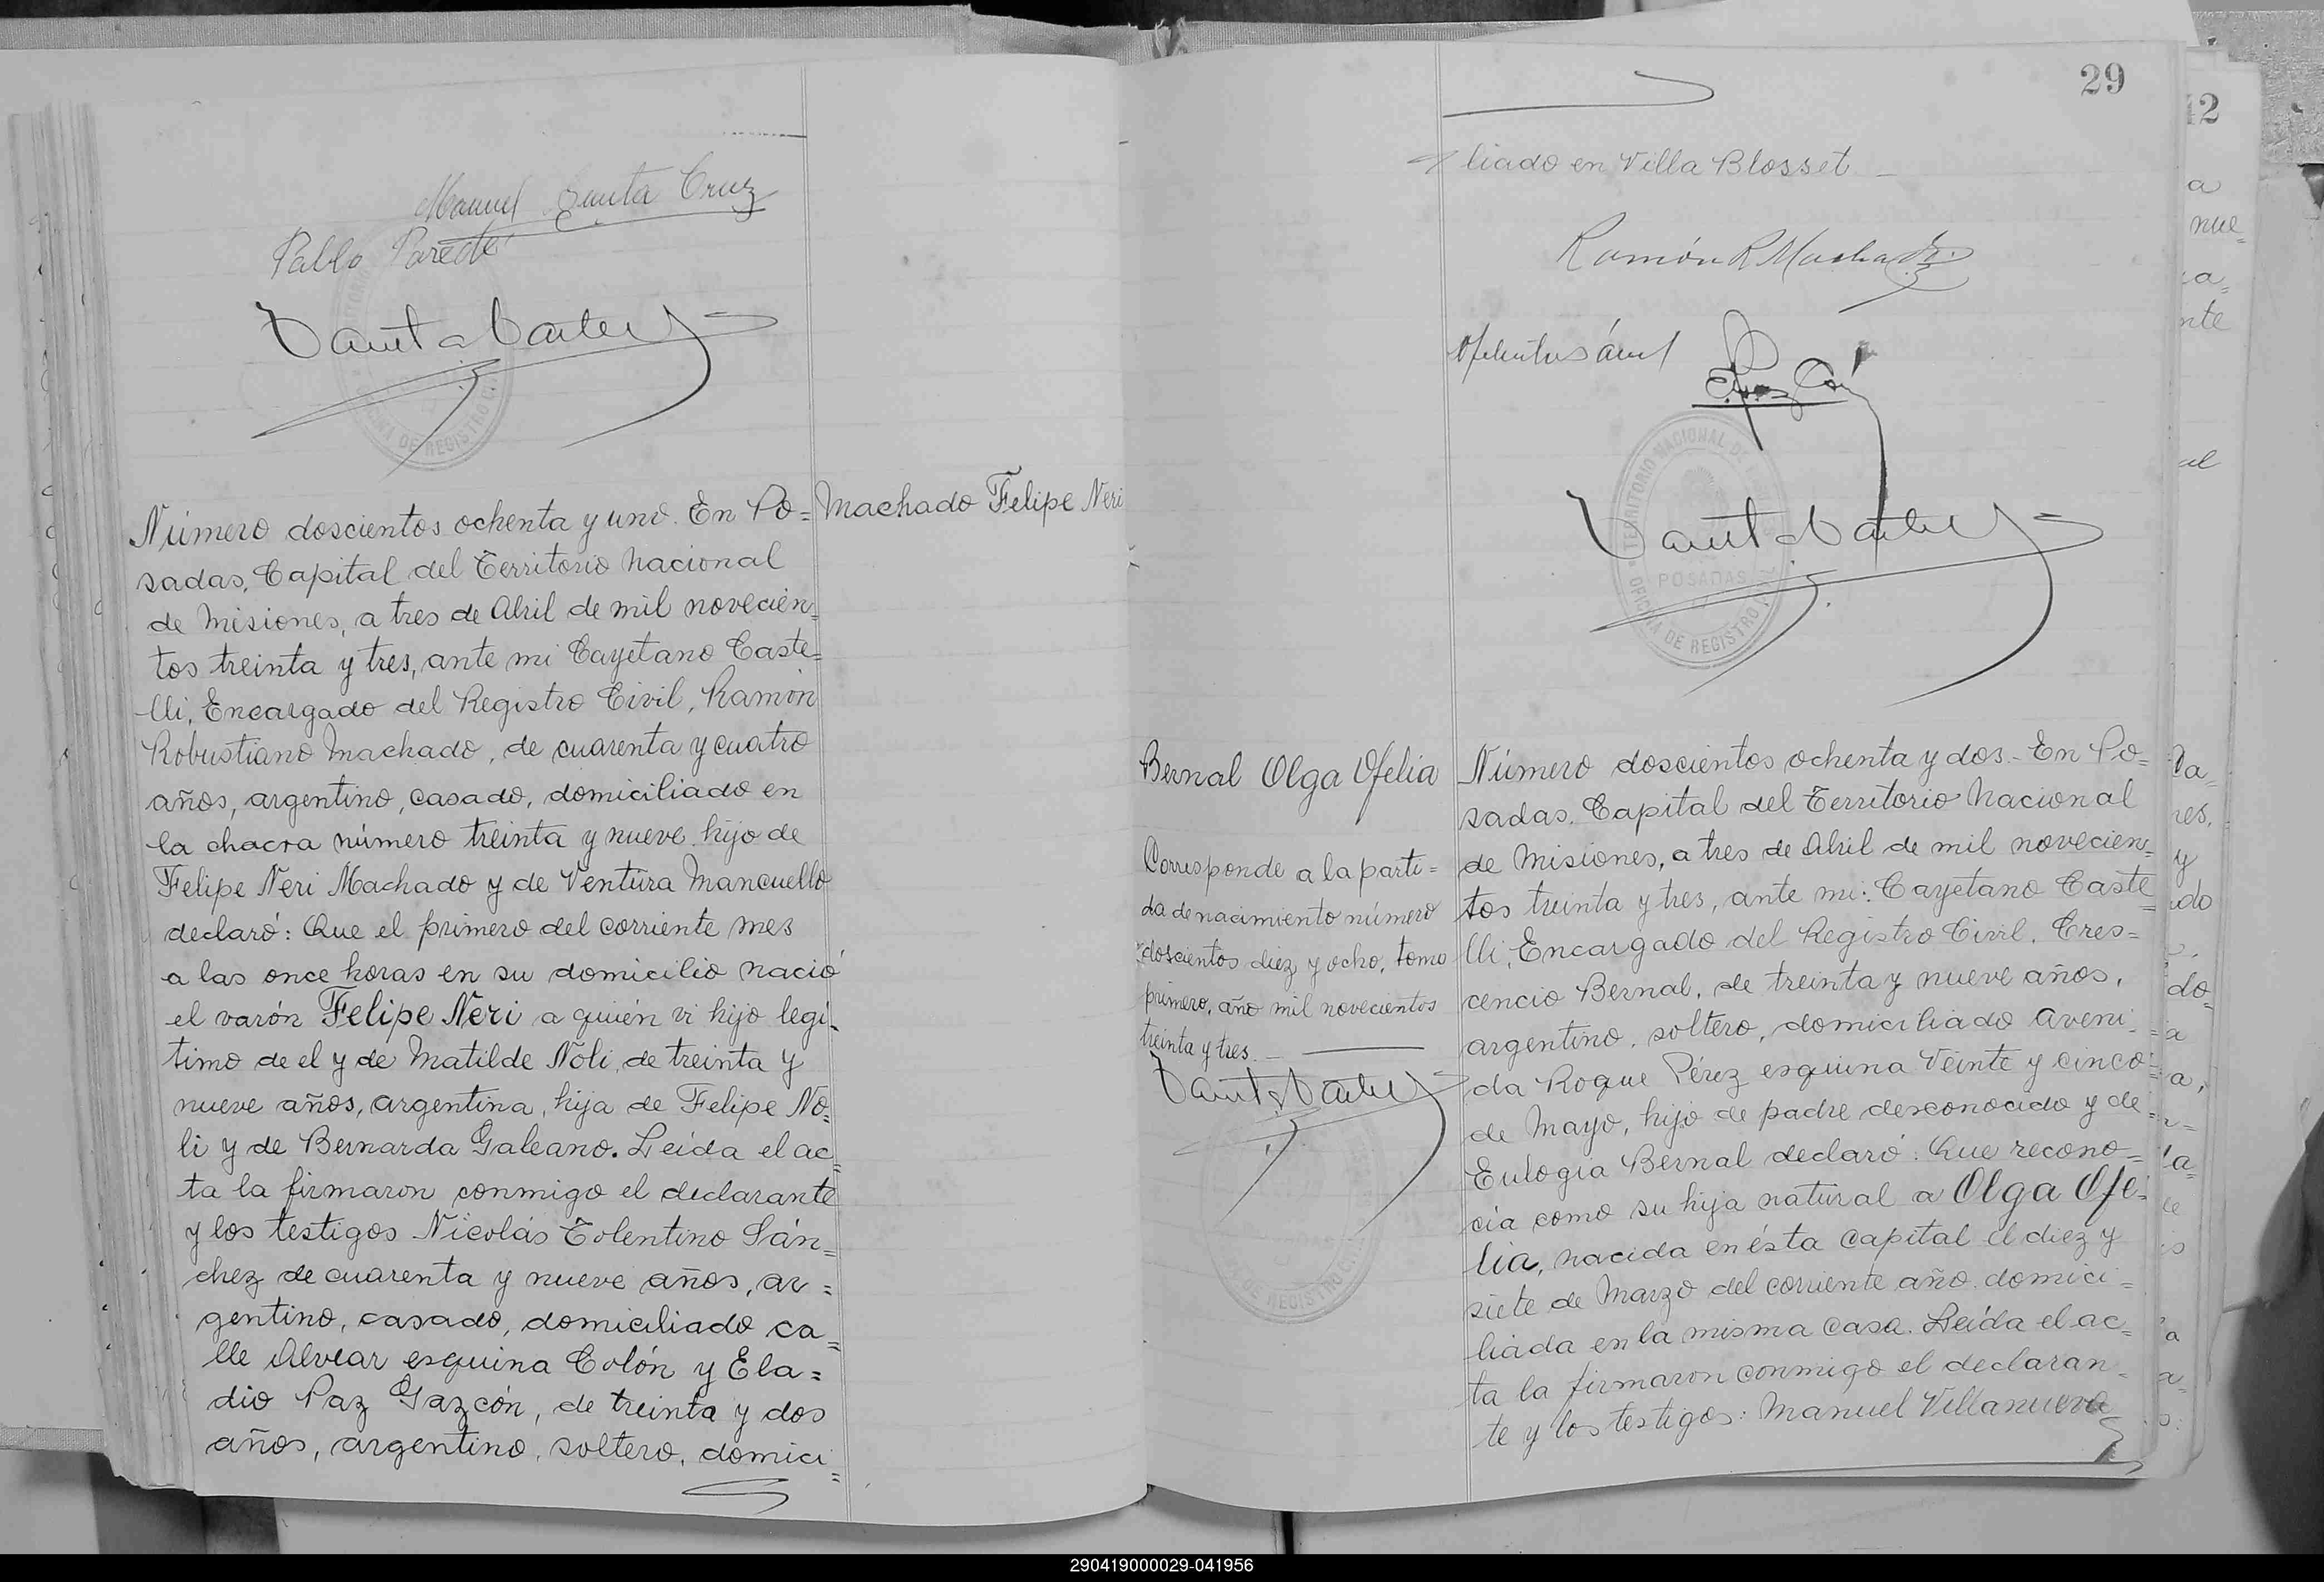 Manuel Santa Cruz
Pablo Parede
Número doscientos ochenta y uno. En Po=
sadas, Capital del Territorio Nacional
de Misiones, a tres de Abril de mil novecien=
tos treinta y tres, ante mi Cayetano Caste=
lli, Encargado del Registro Civil, Ramón
Robustiano Machado, de cuarenta y cuatro
años, argentino, casado, domiciliado en
la chacra número treinta y nueve hijo de
Felipe Neri Machado y de Ventura Mancuello
declaró: Que el primero del corriente mes
a las once horas en su domicilio nació
el varón Felipe Neri a quién vi hijo legí=
timo de el y de Matilde Noli, de treinta y
nueve años, argentina, hija de Felipe No=
li y de Bernarda Galeano. Leída el ac=
ta la firmaron conmigo el declarante
y los testigos Nicolás Tolentino Sán=
chez de cuarenta y nueve años, ar=
gentino, casado, domiciliado ca=
lle Alvear esquina Colón y Ela=
dio Paz Gazcón, de treinta y dos
años, argentino, soltero, domici=
Machado Felipe Neri
29
liado en Villa Blosset
Ramón R Machado
TERRITORIO NACIONAL DE
POSADAS
OFICINA DE REGISTRO
Bernal Olga Ofelia
Corresponde a la parti=
da de nacimiento número
doscientos diez y ocho, tomo
primero, año mil novecientos
treinta y tres.
Número doscientos ochenta y dos.- En Po=
sadas, Capital del Territorio Nacional
de Misiones, a tres de Abril de mil novecien=
tos treinta y tres, ante mi: Cayetano Caste=
lli, Encargado del Registro Civil, Cres=
cencio Bernal, de treinta y nueve años,
argentino, soltero, domiciliado Aveni=
da Roque Pérez esquina Veinte y cinco
de Mayo, hijo de padre desconocido y de
Eulogia Bernal declaró: Que recono=
cía como su hija natural a Olga Ofe=
lia, nacida en ésta Capital el diez y
siete de Marzo del corriente año domici=
liada en la misma casa. Leída el ac=
ta la firmaron conmigo el declaran=
te y los testigos: Manuel Villanueva
12
290419000029-041956